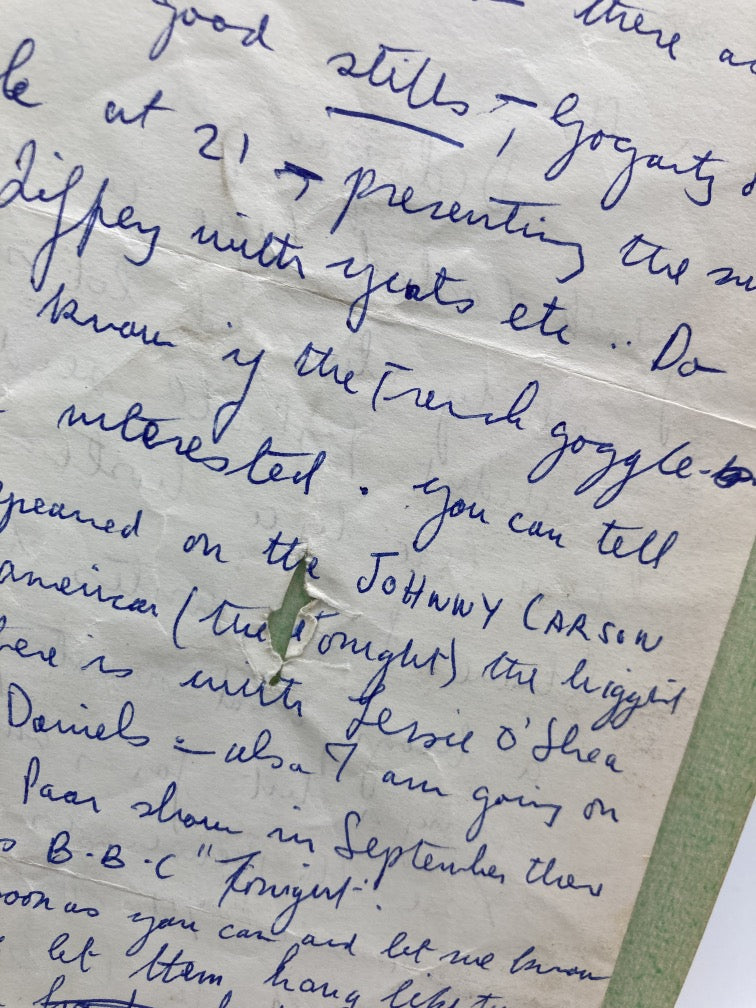 there
good stills, Gogarty
at 21 presenting the
Liffey with yeats etc .. Do
know if the French goggle-
interested. you can tell
on the JOHNNY CARSON
american (the Tonight) the biggest
is with Tessie O'Shea
Daniels - also I am going on
Paar show in September then
B.B.C "Tonight".
soon as you can and let me know
let them hang like